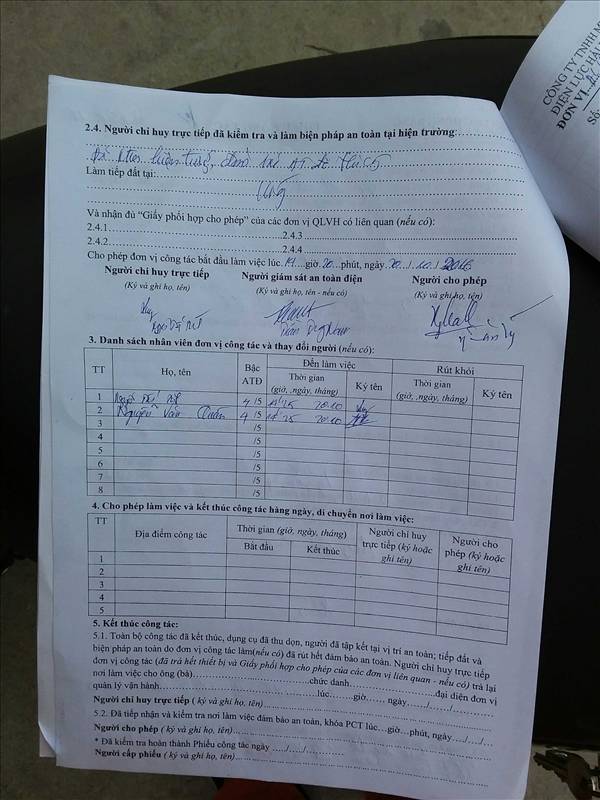 CÔNG TY TNHH M
ĐIỆN LỰC HẢI
ĐƠN VỊ
Số:
2.4. Người chỉ huy trực tiếp đã kiểm tra và làm biện pháp an toàn tại hiện trường:
Làm tiếp đất tại:
Và nhận đủ "Giấy phối hợp cho phép" của các đơn vị QLVH có liên quan (nếu có):
2.4.1 2.4.3
2.4.2 2.4.4
Cho phép đơn vị công tác bắt đầu làm việc lúc giờ 20 phút, ngày 20 / 10 / 2016
Người chỉ huy trực tiếp Người giám sát an toàn điện Người cho phép
(Ký và ghi họ, tên) (Ký và ghi họ, tên - nếu có) (Ký và ghi họ, tên)
3. Danh sách nhân viên đơn vị công tác và thay đổi người (nếu có):
TT Họ, tên Bậc ATĐ Đến làm việc Rút khỏi
Thời gian (giờ, .ngày, tháng) Ký tên Thời gian (giờ, .ngày, tháng) Ký tên
1 4 /5 20.10
2 Nguyễn Văn 4 /5 20.10
3 /5
4 /5
5 /5
6 /5
7 /5
8 /5
4. Cho phép làm việc và kết thúc công tác hàng ngày, di chuyển nơi làm việc:
TT Địa điểm công tác Thời gian (giờ, ngày, tháng) Người chỉ huy trực tiếp (ký hoặc ghi tên) Người cho phép (ký hoặc ghi tên)
Bắt đầu Kết thúc
1
2
3
4
5
5. Kết thúc công tác:
5.1. Toàn bộ công tác đã kết thúc, dụng cụ đã thu dọn, người đã tập kết tại vị trí an toàn; tiếp đất và
biện pháp an toàn do đơn vị công tác làm(nếu có) đã rút hết đảm bảo an toàn. Người chỉ huy trực tiếp
đơn vị công tác (đã trả hết thiết bị và Giấy phối hợp cho phép của các đơn vị liên quan - nếu có) trả lại
nơi làm việc cho ông (bà) chức danh đại diện đơn vị
quản lý vận hành lúc giờ ngày / /
Người chỉ huy trực tiếp ( ký và ghi họ, tên)
5.2. Đã tiếp nhận và kiểm tra nơi làm việc đảm bảo an toàn, khóa PCT lúc giờ phút, ngày / /
Người cho phép ( ký và ghi họ, tên)
* Đã kiểm tra hoàn thành Phiếu công tác ngày / /
Người cấp phiếu ( ký và ghi họ, tên)